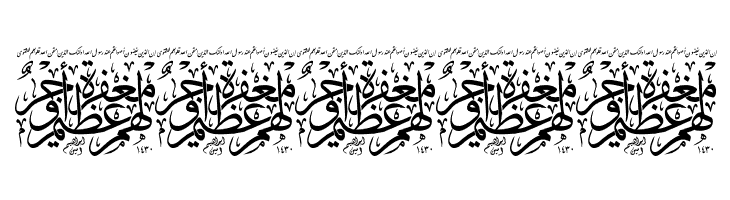 إن الذين يغضون أصواتهم عند رسول الله أولئك الذين امتحن الله قلوبهم للتقوى إن الذين يغضون أصواتهم عند رسول الله أولئك الذين امتحن الله قلوبهم للتقوى إن الذين يغضون أصواتهم عند رسول الله أولئك الذين امتحن الله قلوبهم للتقوى إن الذين يغضون أصواتهم عند رسول الله أولئك الذين امتحن الله قلوبهم للتقوى إن الذين يغضون أصواتهم عند رسول الله أولئك الذين امتحن الله قلوبهم للتقوى
لهم مغفرة وأجر عظيم لهم مغفرة وأجر عظيم لهم مغفرة وأجر عظيم لهم مغفرة وأجر عظيم لهم مغفرة وأجر عظيم
١٤٣٠ ابراهيم ١٤٣٠ ابراهيم ١٤٣٠ ابراهيم ١٤٣٠ ابراهيم ١٤٣٠ ابراهيم